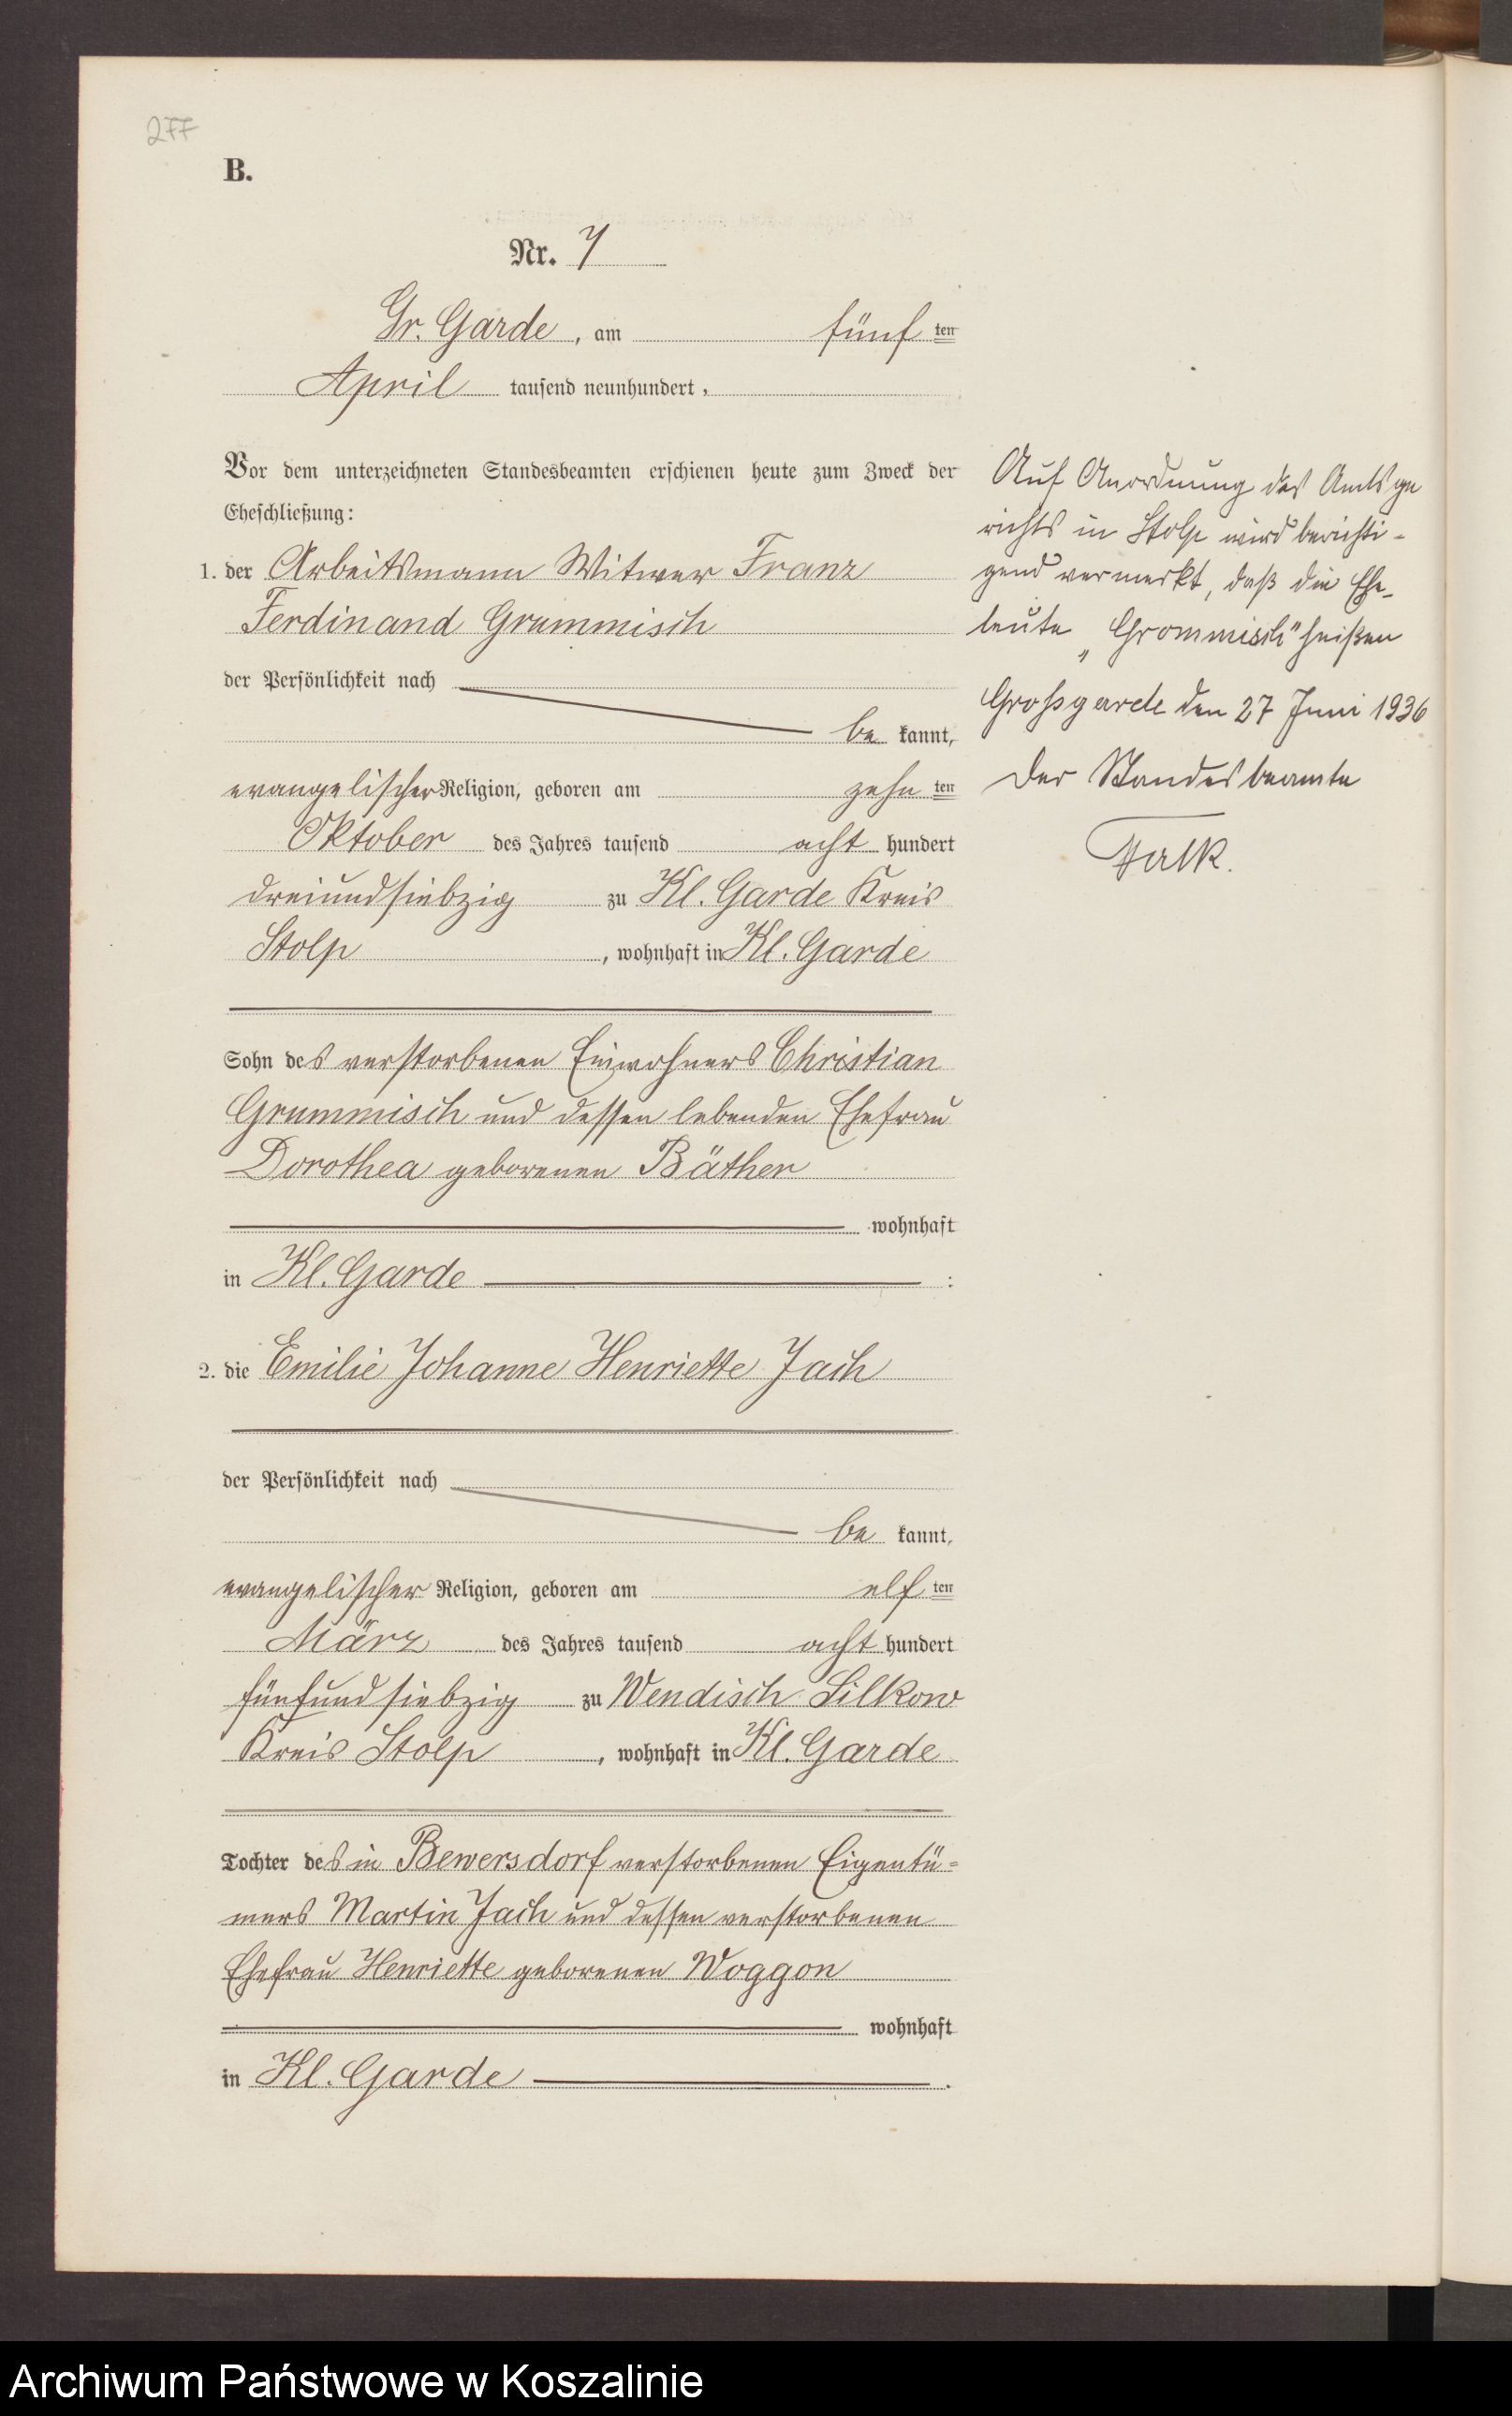 277
B.
Nr. 7
Gr. Garde, am fünf ten
April tausend neunhundert,
Vor dem unterzeichneten Standesbeamten erschienen heute zum Zweck der
Eheschließung:
1. der Arbeitsmann Witwer Franz
Ferdinand Grummisch
der Persönlichkeit nach
be kannt,
evangelischer Religion, geboren am zehn ten
Oktober des Jahres tausend acht hundert
dreiundsiebzig zu Kl. Garde Kreis
Stolp, wohnhaft in Kl. Garde
Sohn des verstorbenen Einwohners Christian
Grummisch und dessen lebenden Ehefrau
Dorothea geborenen Bäther
wohnhaft
in Kl. Garde :
2. die Emilie Johanne Henriette Jach
der Persönlichkeit nach
be kannt,
evangelischer Religion, geboren am elf ten
März des Jahres tausend acht hundert
fünfundsiebzig zu Wendisch Silkow
Kreis Stolp, wohnhaft in Kl. Garde
Tochter des in Bewersdorf verstorbenen Eigentü-
mers Martin Jach und dessen verstorbenen
Ehefrau Henriette geborenen Woggon
wohnhaft
in Kl. Garde .
Auf Anordnung des Amtsge
richts in Stolp wird berichti-
gend vermerkt, daß die Ehe-
leute „Grommisch" heißen
Grossgarde den 27 Juni 1936
Der Standesbeamte
Falk.
Archiwum Państwowe w Koszalinie